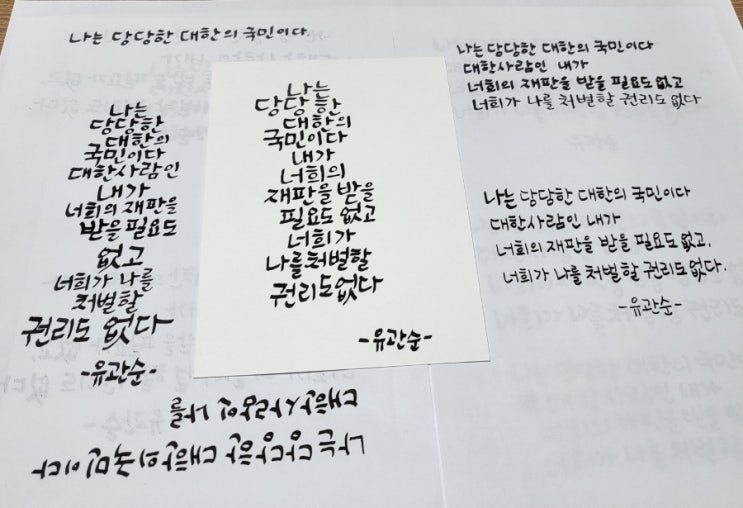 나는 당당한 대한의 국민이다.
나는
당당한
대한의
국민이다
대한사람인
내가
너희의 재판을
받을 필요도
없고
너희가 나를
처벌할
권리도 없다
-유관순-
나는
당당한
대한의
국민이다
내가
너희의
재판을 받을
필요도 없고
너희가
나를 처벌할
권리도 없다
-유관순-
나는 당당한 대한의 국민이다
대한사람인 내가
너희의 재판을 받을 필요도 없고
너희가 나를 처벌할 권리도 없다
나는 당당한 대한의 국민이다
대한사람인 내가
너희의 재판을 받을 필요도 없고.
너희가 나를 처벌할 권리도 없다.
-유관순-
나는 당당한 대한의 국민이다
대한사람인